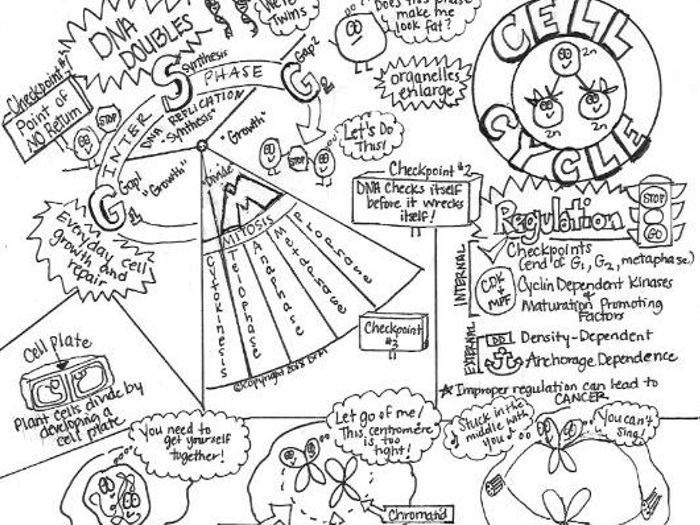 DNA
DOUBLES
We're
Twins
Does this phase
make me
look fat?
CELL
CYCLE
2n
2n
2n
Checkpoint #1
Point of
No Return
STOP
INTER
Synthesis
S PHASE
Gap 2
G2
DNA REPLICATION
"Synthesis"
"Growth"
organelles
enlarge
Let's Do
This!
STOP
Gap 1
G1
"Growth"
Everyday Cell
growth and
repair
"Divide"
M
MITOSIS
Cytokinesis
Telophase
Anaphase
Metaphase
Prophase
©Copyright 2018
Checkpoint #2
DNA Checks itself
before it wrecks
itself!
Checkpoint
#3
Regulation
STOP
GO
INTERNAL
Checkpoints
(end of G1, G2, metaphase)
CDK
+
MPF
Cyclin Dependent Kinases
&
Maturation Promoting
Factors
EXTERNAL
DD
Density-Dependent
Anchorage Dependence
★ Improper regulation can lead to
CANCER
Cell plate
Plant cells divide by
developing a
cell plate
You need to
get yourself
together!
Let go of me!
This centromere
is too
tight!
Chromatid
Stuck in the
middle with
you
You can't
sing!